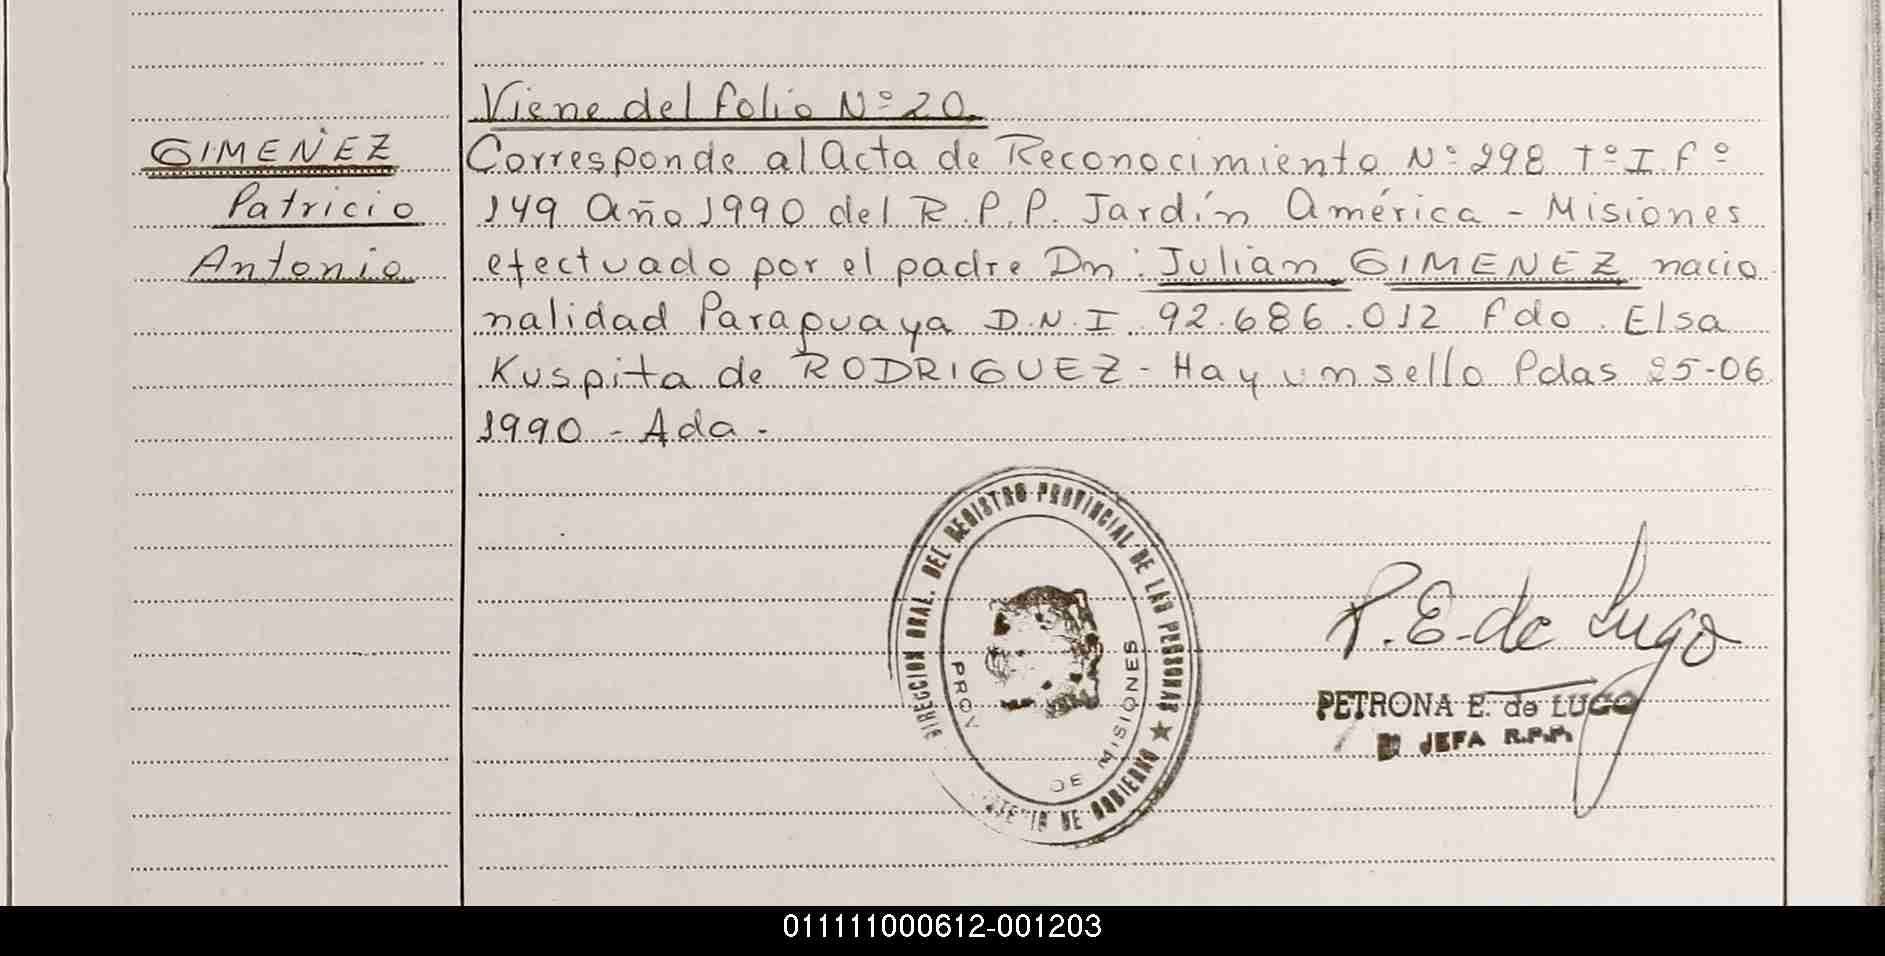 Viene del folio Nº 20.
GIMENEZ
Patricio
Antonio
Corresponde al Acta de Reconocimiento Nº 298 Tº I. Fº
149 Año 1990 del R.P.P. Jardín América - Misiones
efectuado por el padre Dn: Julian GIMENEZ nacio
nalidad Parapuaya D.N.I 92.686.012 fdo. Elsa
Kuspita de RODRIGUEZ - Hay un sello Pdas 25-06
1990 - Ada -
DIRECCION GRAL. DEL REGISTRO PROVINCIAL DE LAS PERSONAS
DE GOBIERNO
PROV DE MISIONES
P. E. de Lugo
PETRONA E. de LUGO
JEFA R.P.P.
011111000612-001203